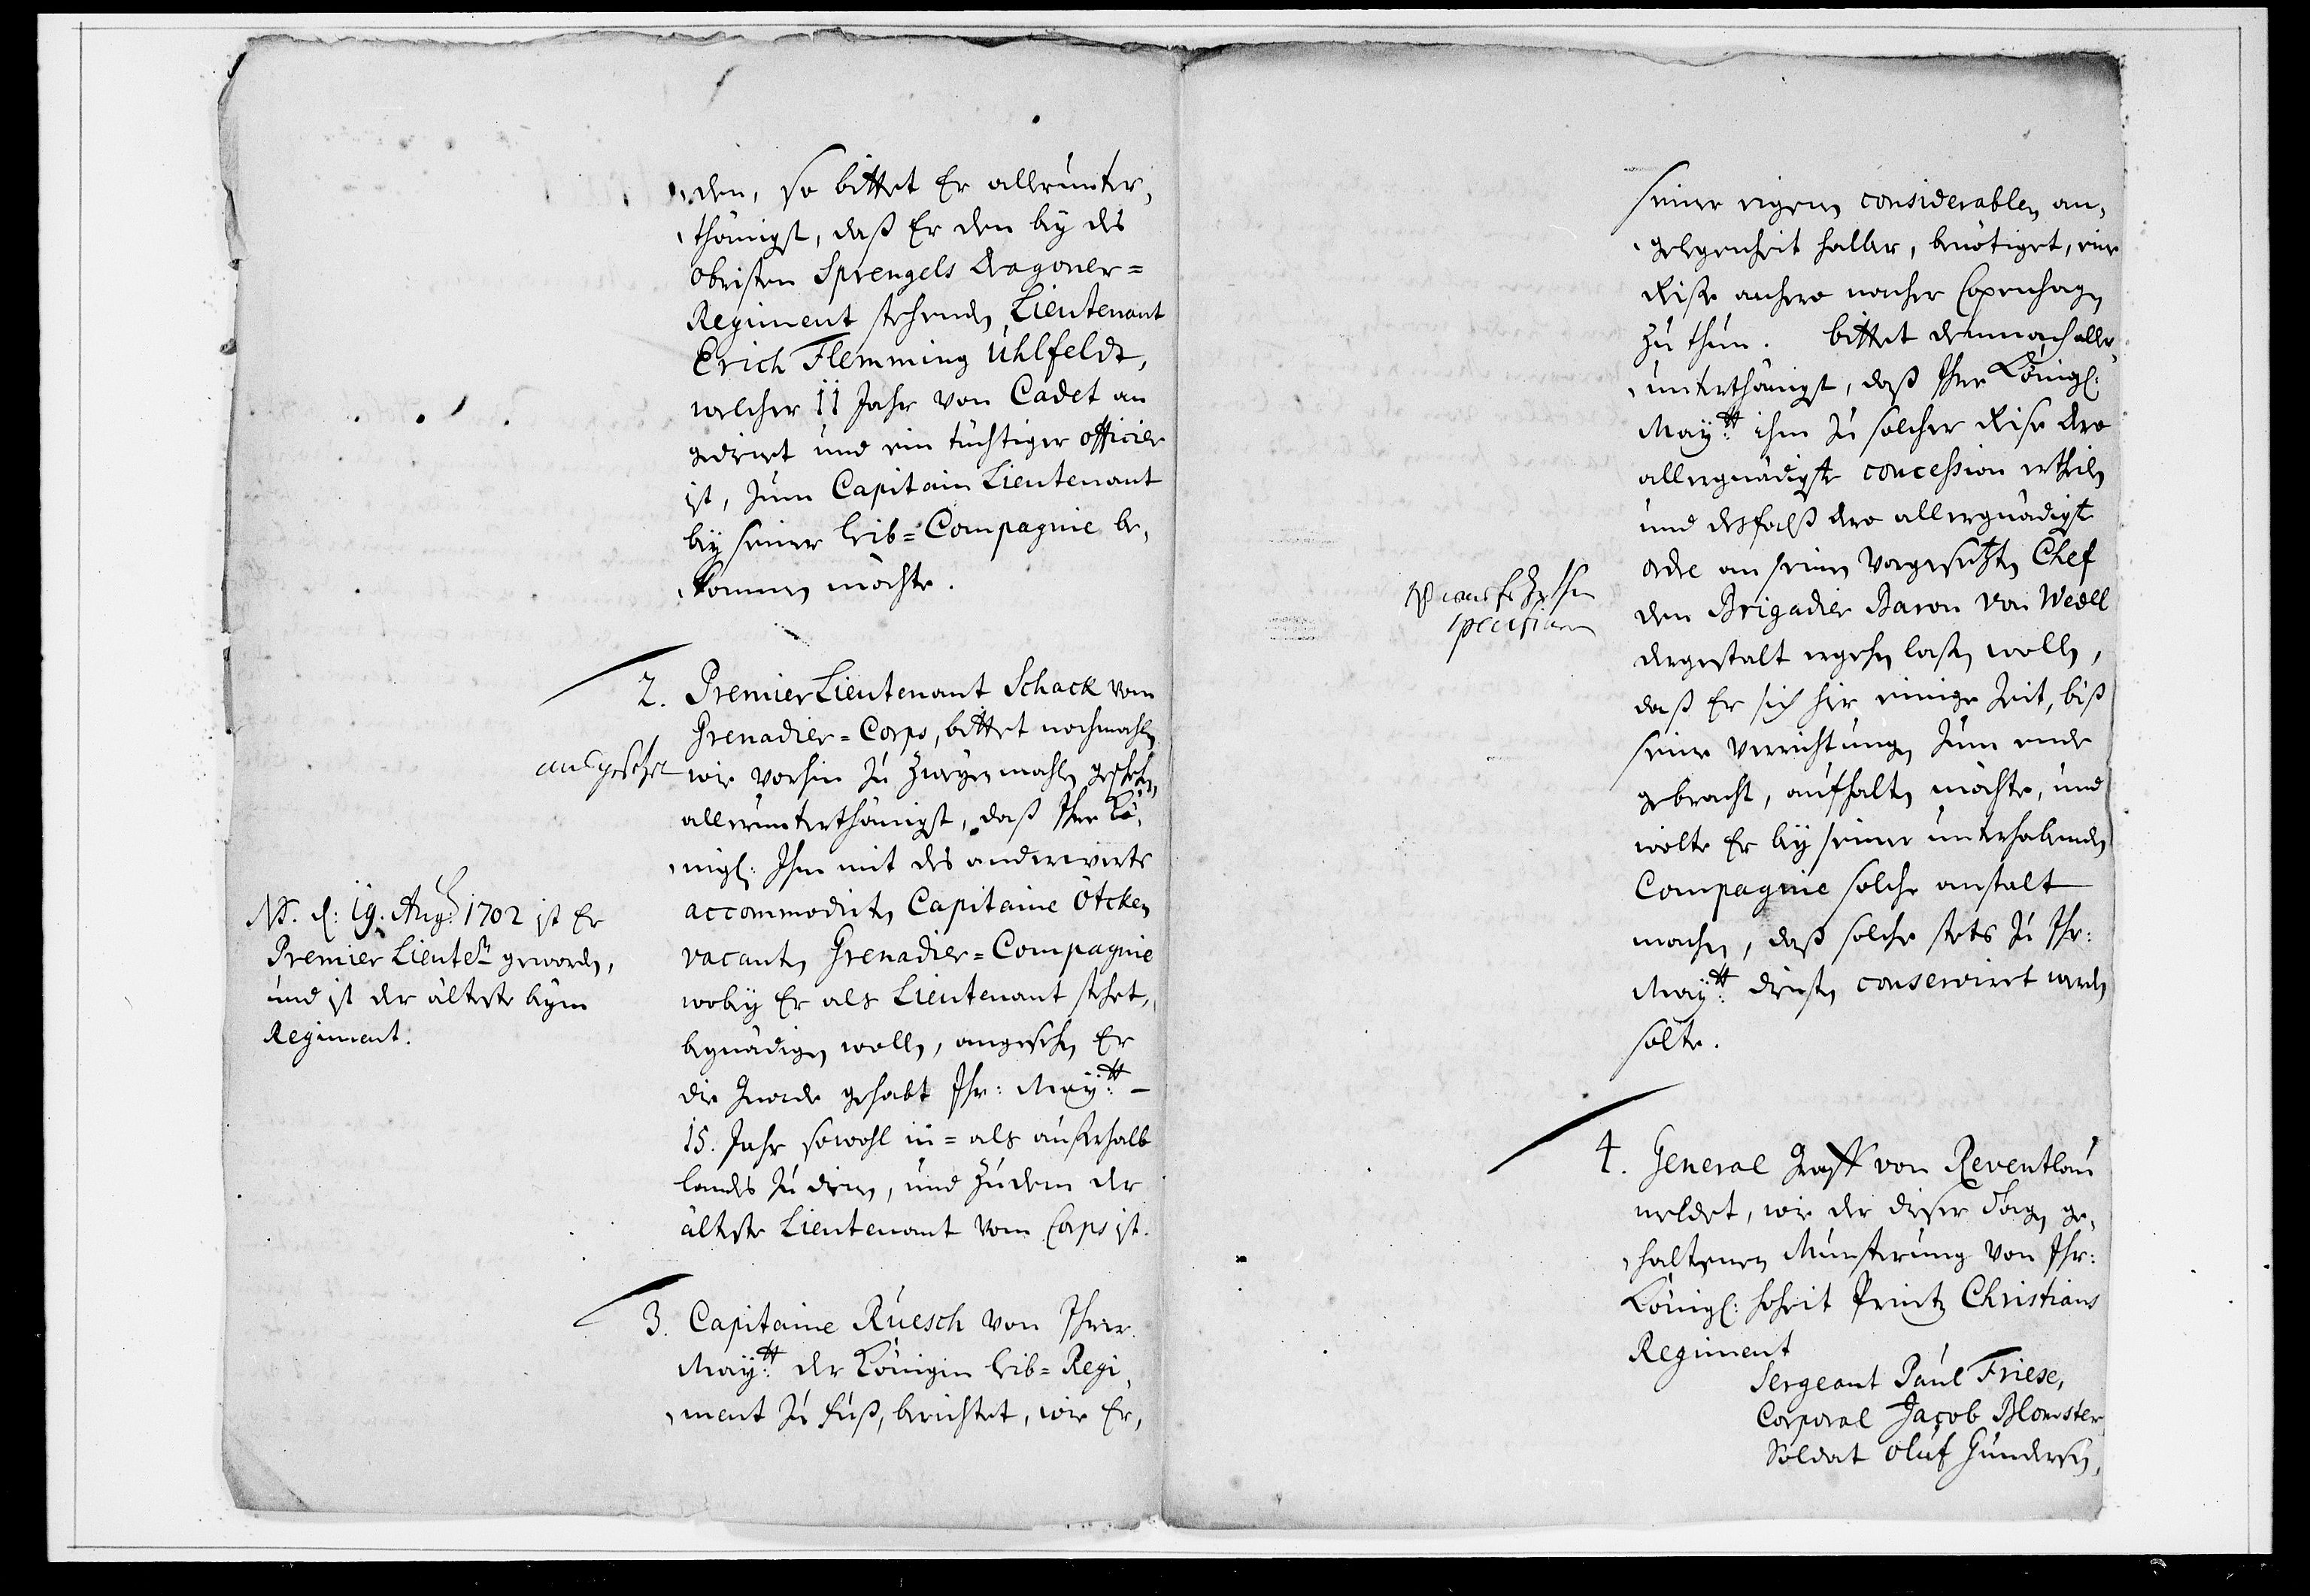 den, so bittet Er allerunter,
thänigst, daß Er den bey des
obristen Sprengels Dragoner=
Regiment stehenden Lieutenant
Erich Flemming Uhlfeldt,
welcher 11 Jahr von Cadet an
gedient und ein tüchtiger officier
ist, zum Capitain Lieutenant
bey seiner Leib=Compagnie be,
kommen möchte.
2. Premier Lieutenant Schack vom
Grenadier=Corps, bittet nochmahls
wie vorhin zu zweyenmahlen geschehen,
allerunterthänigst, daß Ihre Kö,
nigl: Ihm mit des anderwerts
accommodirten Capitaine Ötcken
vacanten Grenadier=Compagnie
wobey Er als Lieutenant stehet,
begnädigen wollen, angesehen Er
die Gnade gehabt Ihr: May:tt
15. Jahr sowohl in= als außerhalb
Landes zu dienen, und zudem der
älteste Lieutenant vom Corps ist.
NB. d: 19. Aug: 1702 ist Er
Premier Lieute: geworden,
und ist der älteste beym
Regiment.
3. Capitaine Ruesch von Ihrer
May:tt der Königin Leib=Regi,
ment zu Fuß, berichtet, wie Er,
seiner eigenen considerablen an,
gelegenheit halber, benötiget, eine
Reise anhero nacher Copenhagen
zu thun. bittet demnach aller,
unterthänigst, daß Ihre Königl:
May:tt ihm zu solcher Reise dero
allergnädigste concession ertheilen
und desfalß dero allergnädigste
ordre an seinen vorgesetzten Chef
den Brigadier Baron von Wedel
dergestalt ergehen laßen wollen,
daß Er sich hir einige Zeit, biß
seine verrichtungen zum ende
gebracht, aufhalten möchte, und
wolte Er bey seiner unterhabenden
Compagnie solche anstalt
machen, daß solche stets zu Ihr:
May:tt diensten conserviret werden
solte.
4. General Graff von Reventlau
meldet, wie der dieser Tagen ge,
haltenen Munsterung von Ihr:
Königl: Hoheit Printz Christians
Regiment
Sergeant Paul Friese,
Corporal Jacob Blomster
Soldat Oluf Gundersen,